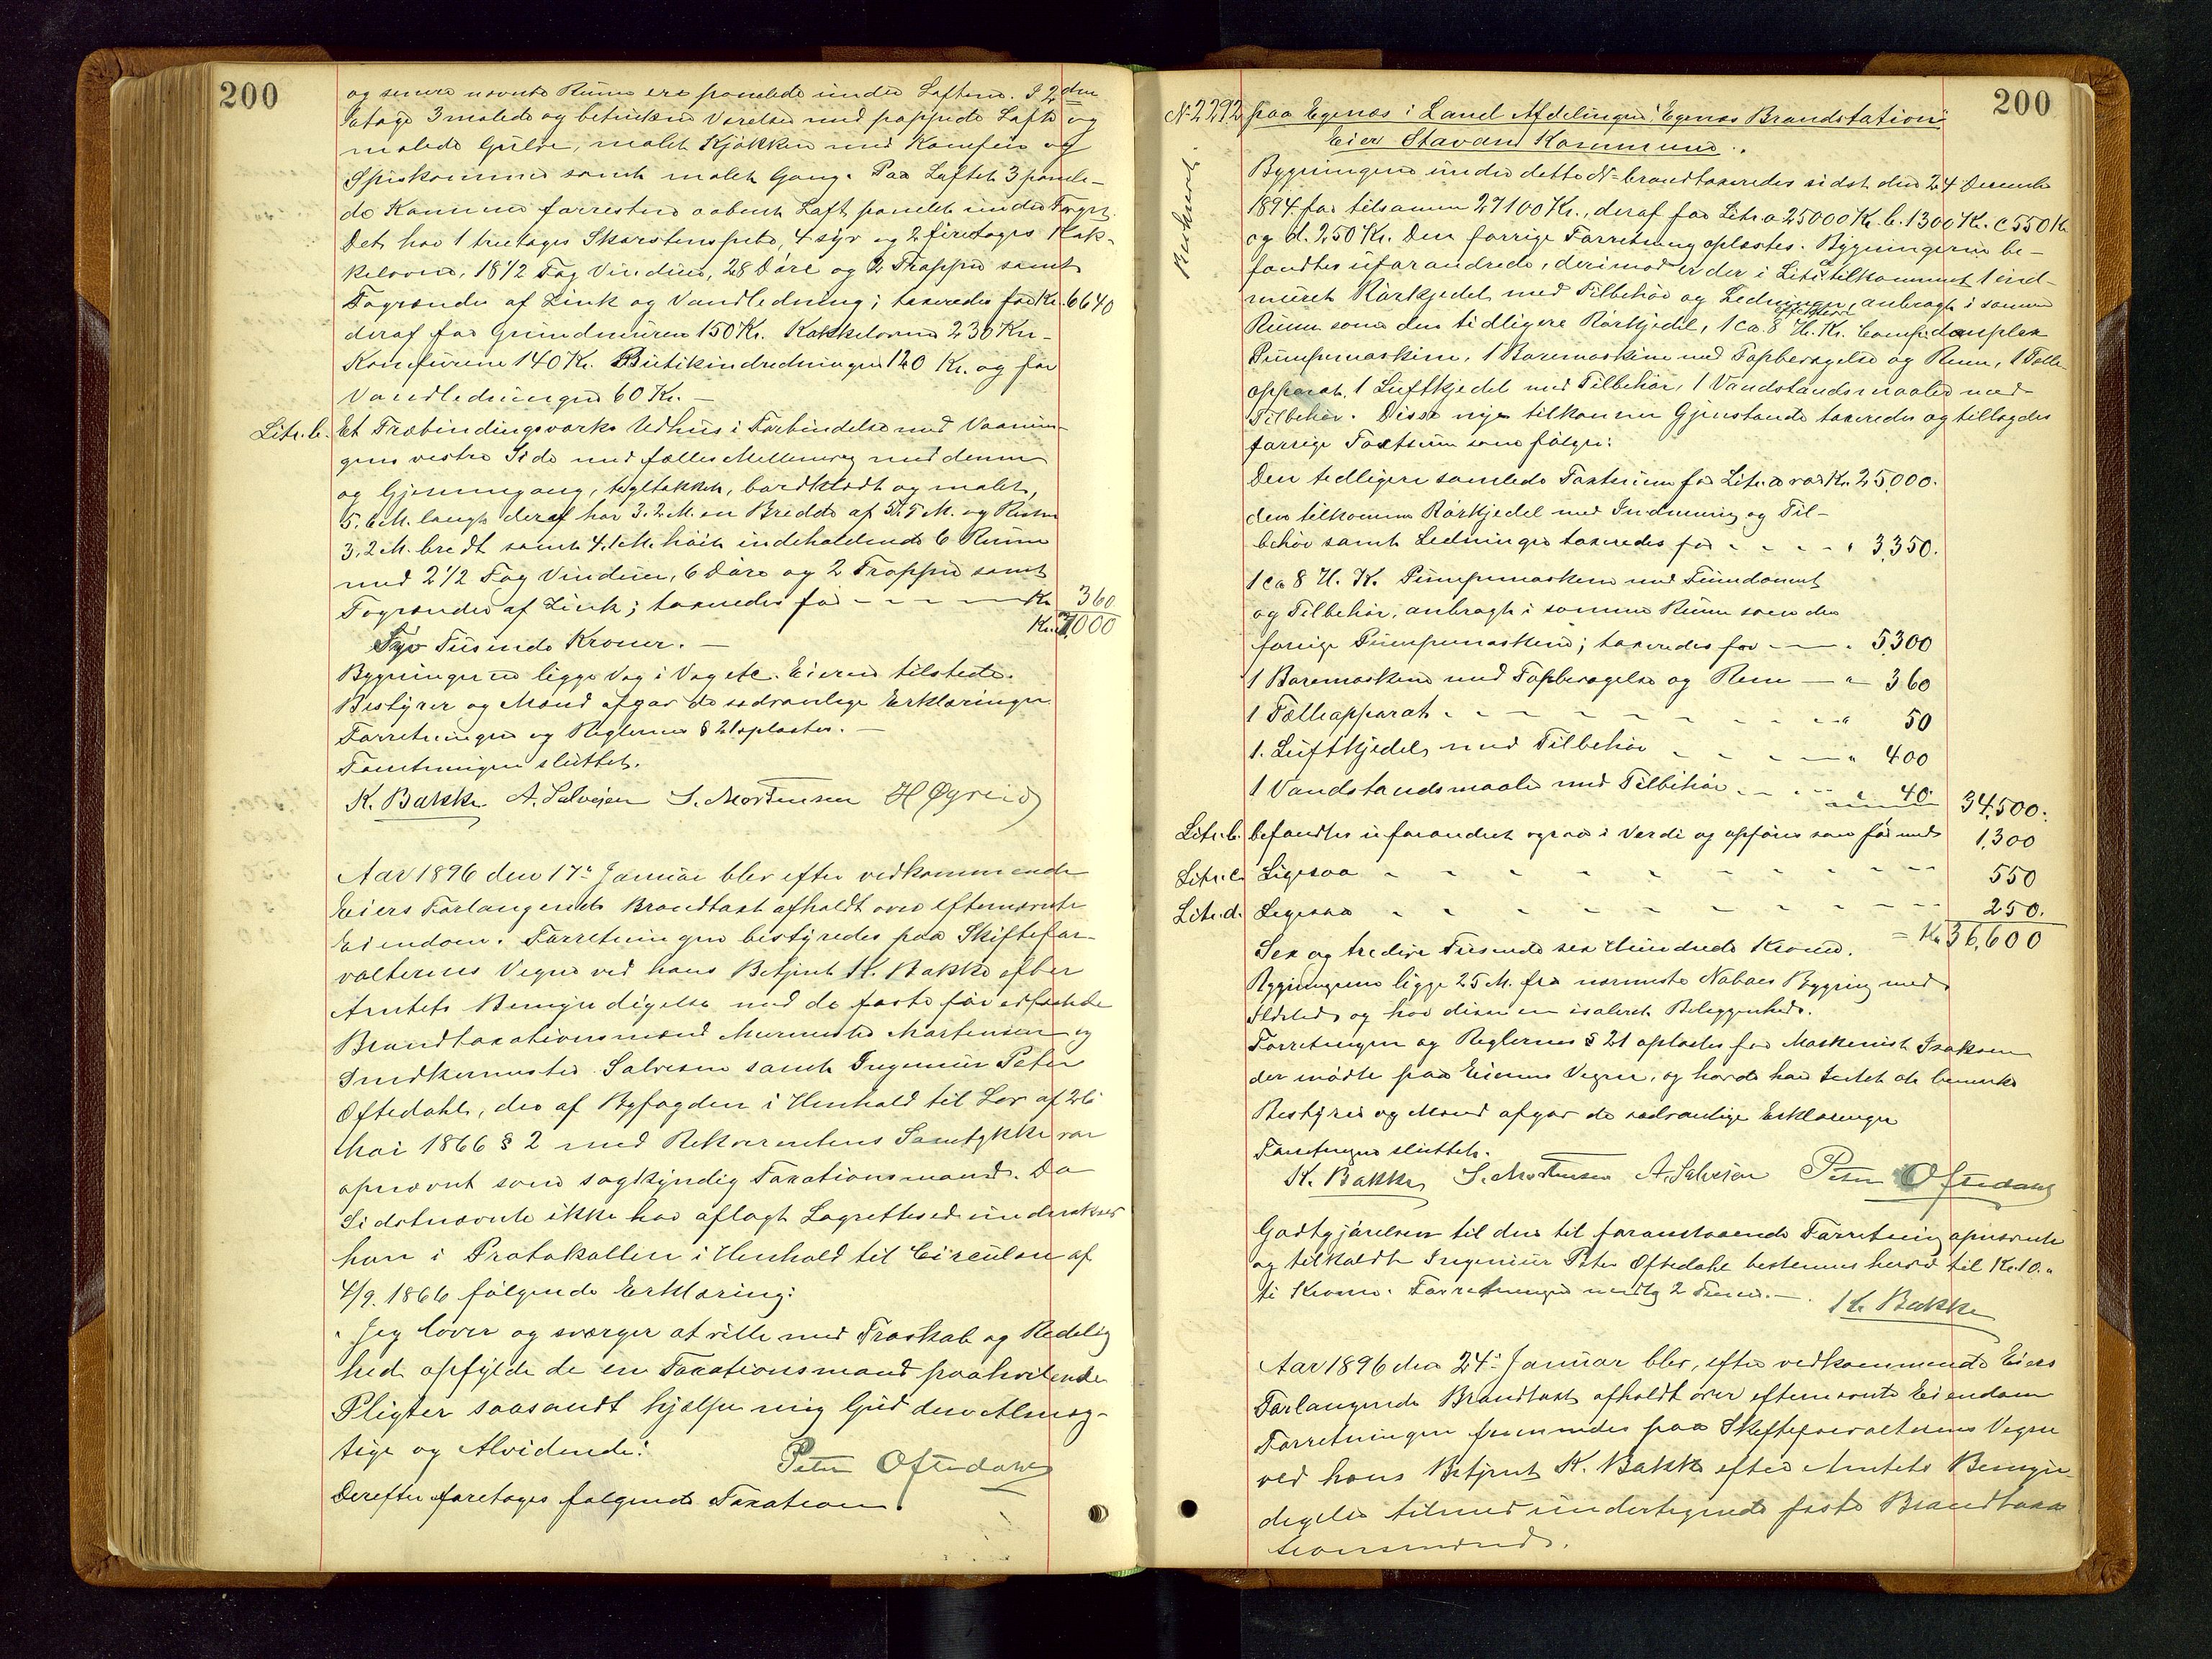 200
og senere nævnte Rum ere panelede under Loftene. I 2den
Etage 3 malede og betrukne Værelser med pappede Lofte og
malede Gulve, malet Kjøkken med Komfur og
Spiskammer samt malet Gang. Paa Loftet 3 panele-
de Kammere forresten aabent Loft panelet under Taget.
Det har 1 treetages Skorstenspibe, 4 syv og 2 fireetages Kak-
kelovne, 18 1/2 Fag Vinduer, 28 Døre og 2 Trapper samt
Tagrender af Zink og Vandledning; taxeredes for Kr. 6640
deraf for Grundmuren 150 Kr. Kakkelovne 230 Kr.-
Komfurene 140 Kr. Butikindredningen 120 Kr. og for
Vandledningen 60 Kr. —
Litr. b. Et Træbindingsværks Udhus i Forbindelse med Vaanin-
gens vestre Side med fælles Mellemvæg med denne
og Gjennemgang, tegltækket, bordklædt og malet,
5.6 M. langt deraf har 3.2 M. en Bredde af 5.5 M. og Resten
3.2 M. bredt samt 4.1 M. høit indeholdende 6 Rum
med 2 1/2 Fag Vinduer, 6 Døre og 2 Trapper samt
Tagrender af Zink; taxeredes for - - - Kr. 360
Kr. 7000
Syv Tusinde Kroner. —
Bygningerne ligge Væg i Væg etc. Eieren tilstede.
Bestyrer og Mænd afgav de sædvanlige Erklæringer
Forretningen og Reglernes § 21 oplæstes. —
Forretningen sluttet.
K. Bakke A. Salvesen S. Mortensen H Øgreid
Aar 1896 den 17de Januar blev efter vedkommende
Eiers Forlangende Brandtaxt afholdt over efternævnte
Eiendom. Forretningen bestyredes paa Skiftefor-
valterens Vegne ved hans Betjent K. Bakke efter
Amtets Bemyndigelse med de faste før edfæstede
Brandtaxationsmænd Murmester Mortensen og
Snedkermester Salvesen samt Ingeniør Peter
Oftedahl, der af Byfogden i Henhold til Lov af 26
Mai 1866 § 2 med Rekvirentens Samtykke var
opnævnt som sagkyndig Taxationsmand. Da
Sidstnævnte ikke har aflagt Lagretteseed underskrev
han i Protokollen i Henhold til Circulære af
4/9. 1866 følgende Erklæring:
"Jeg lover og sværger at ville med Troskab og Redelig
hed opfylde de en Taxationsmand paahvilende
Pligter saasandt hjælpe mig Gud den Almæg-
tige og Alvidende."
Peter Oftedahl
Derefter foretoges følgende Taxation
200
No 2292 paa Egenæs i Land Afdelingen "Egenæs Brandstation"
Eier Stavang Kommune.
Bygningerne under dette No brandtaxeredes sidst den 24 December
1894 for tilsammen 27100 Kr., deraf for Litr. a 25000 Kr. b. 1300 Kr. c 550 Kr
og d. 250 Kr. Den forrige Forretning oplæstes. Bygningerne be-
fandtes uforandrede, derimod er der i Litr a tilkommet 1 ind-
muret Rørkjedel med Tilbehør og Ledninger, anbragt i samme
Rum som den tidligere Rørkjedel, 1 ca. 8 effektive H. Kr. Comp. duplex
Pumpemaskine, 1 Boremaskine med Topbevægelse og Rem, 1 Tælle-
apparat, 1 Luftkjedel med Tilbehør, 1 Vandstandsmaaler med
Tilbehør. Disse nye tilkomne Gjenstande taxeredes og tillagdes
forrige Taxtsum som følger:
Den tidligere samlede Taxtsum for Litr. a var Kr. 25,000.
den tilkomne Rørkjedel med Indmuring og Til-
behør samt Ledninger taxeredes for - - - " 3,350.
1 ca 8 H. K. Pumpemaskine med Fundament
og Tilbehør, anbragt i samme Rum som den
forrige Pumpemaskine; taxeredes for - - " 5,300
1 Boremaskine med Topbevægelse og Rem — " 360
1 Tælleapparat - - - " 50
1 Luftkjedel med Tilbehør - - - " 400
1 Vandstandsmaaler med Tilbehør - - " 40 34,500.
Litr. b. befandtes uforandret ogsaa i Værdi og opføres som før med 1,300
Litr. c Ligesaa - - - 550
Litr. d. Ligesaa - - - 250.
= Kr. 36,600
Sex og tredive Tusinde sex Hundrede Kroner.
Bygningerne ligge 25 M. fra nærmeste Naboes Bygning med
Ildsted og har disse en isoleret Beliggenhed.
Forretningen og Reglernes § 21 oplæstes for Maskinist Isaksen
der mødte paa Eierens Vegne, og havde han Intet at bemærke
Bestyrer og Mænd afgav de sædvanlige Erklæringer
Forretningen sluttet.
K. Bakke S. Mortensen A. Salvesen Peter Oftedahl
Godtgjørelsen til den til foranstaaende Forretning opnævnte
og tilkaldte Ingeniør Peter Oftedahl bestemmes herved til Kr. 10.
ti Kroner. Forretningen medtog 2 Timer. —
K. Bakke
Aar 1896 den 24de Januar blev, efter vedkommende Eiers
Forlangende Brandtaxt afholdt over efternævnte Eiendom
Forretningen fremmedes paa Skifteforvalterens Vegne
ved hans Betjent K. Bakke efter Amtets Bemyn-
digelse tilmed undertegnede faste Brandtaxa
tionsmænd.